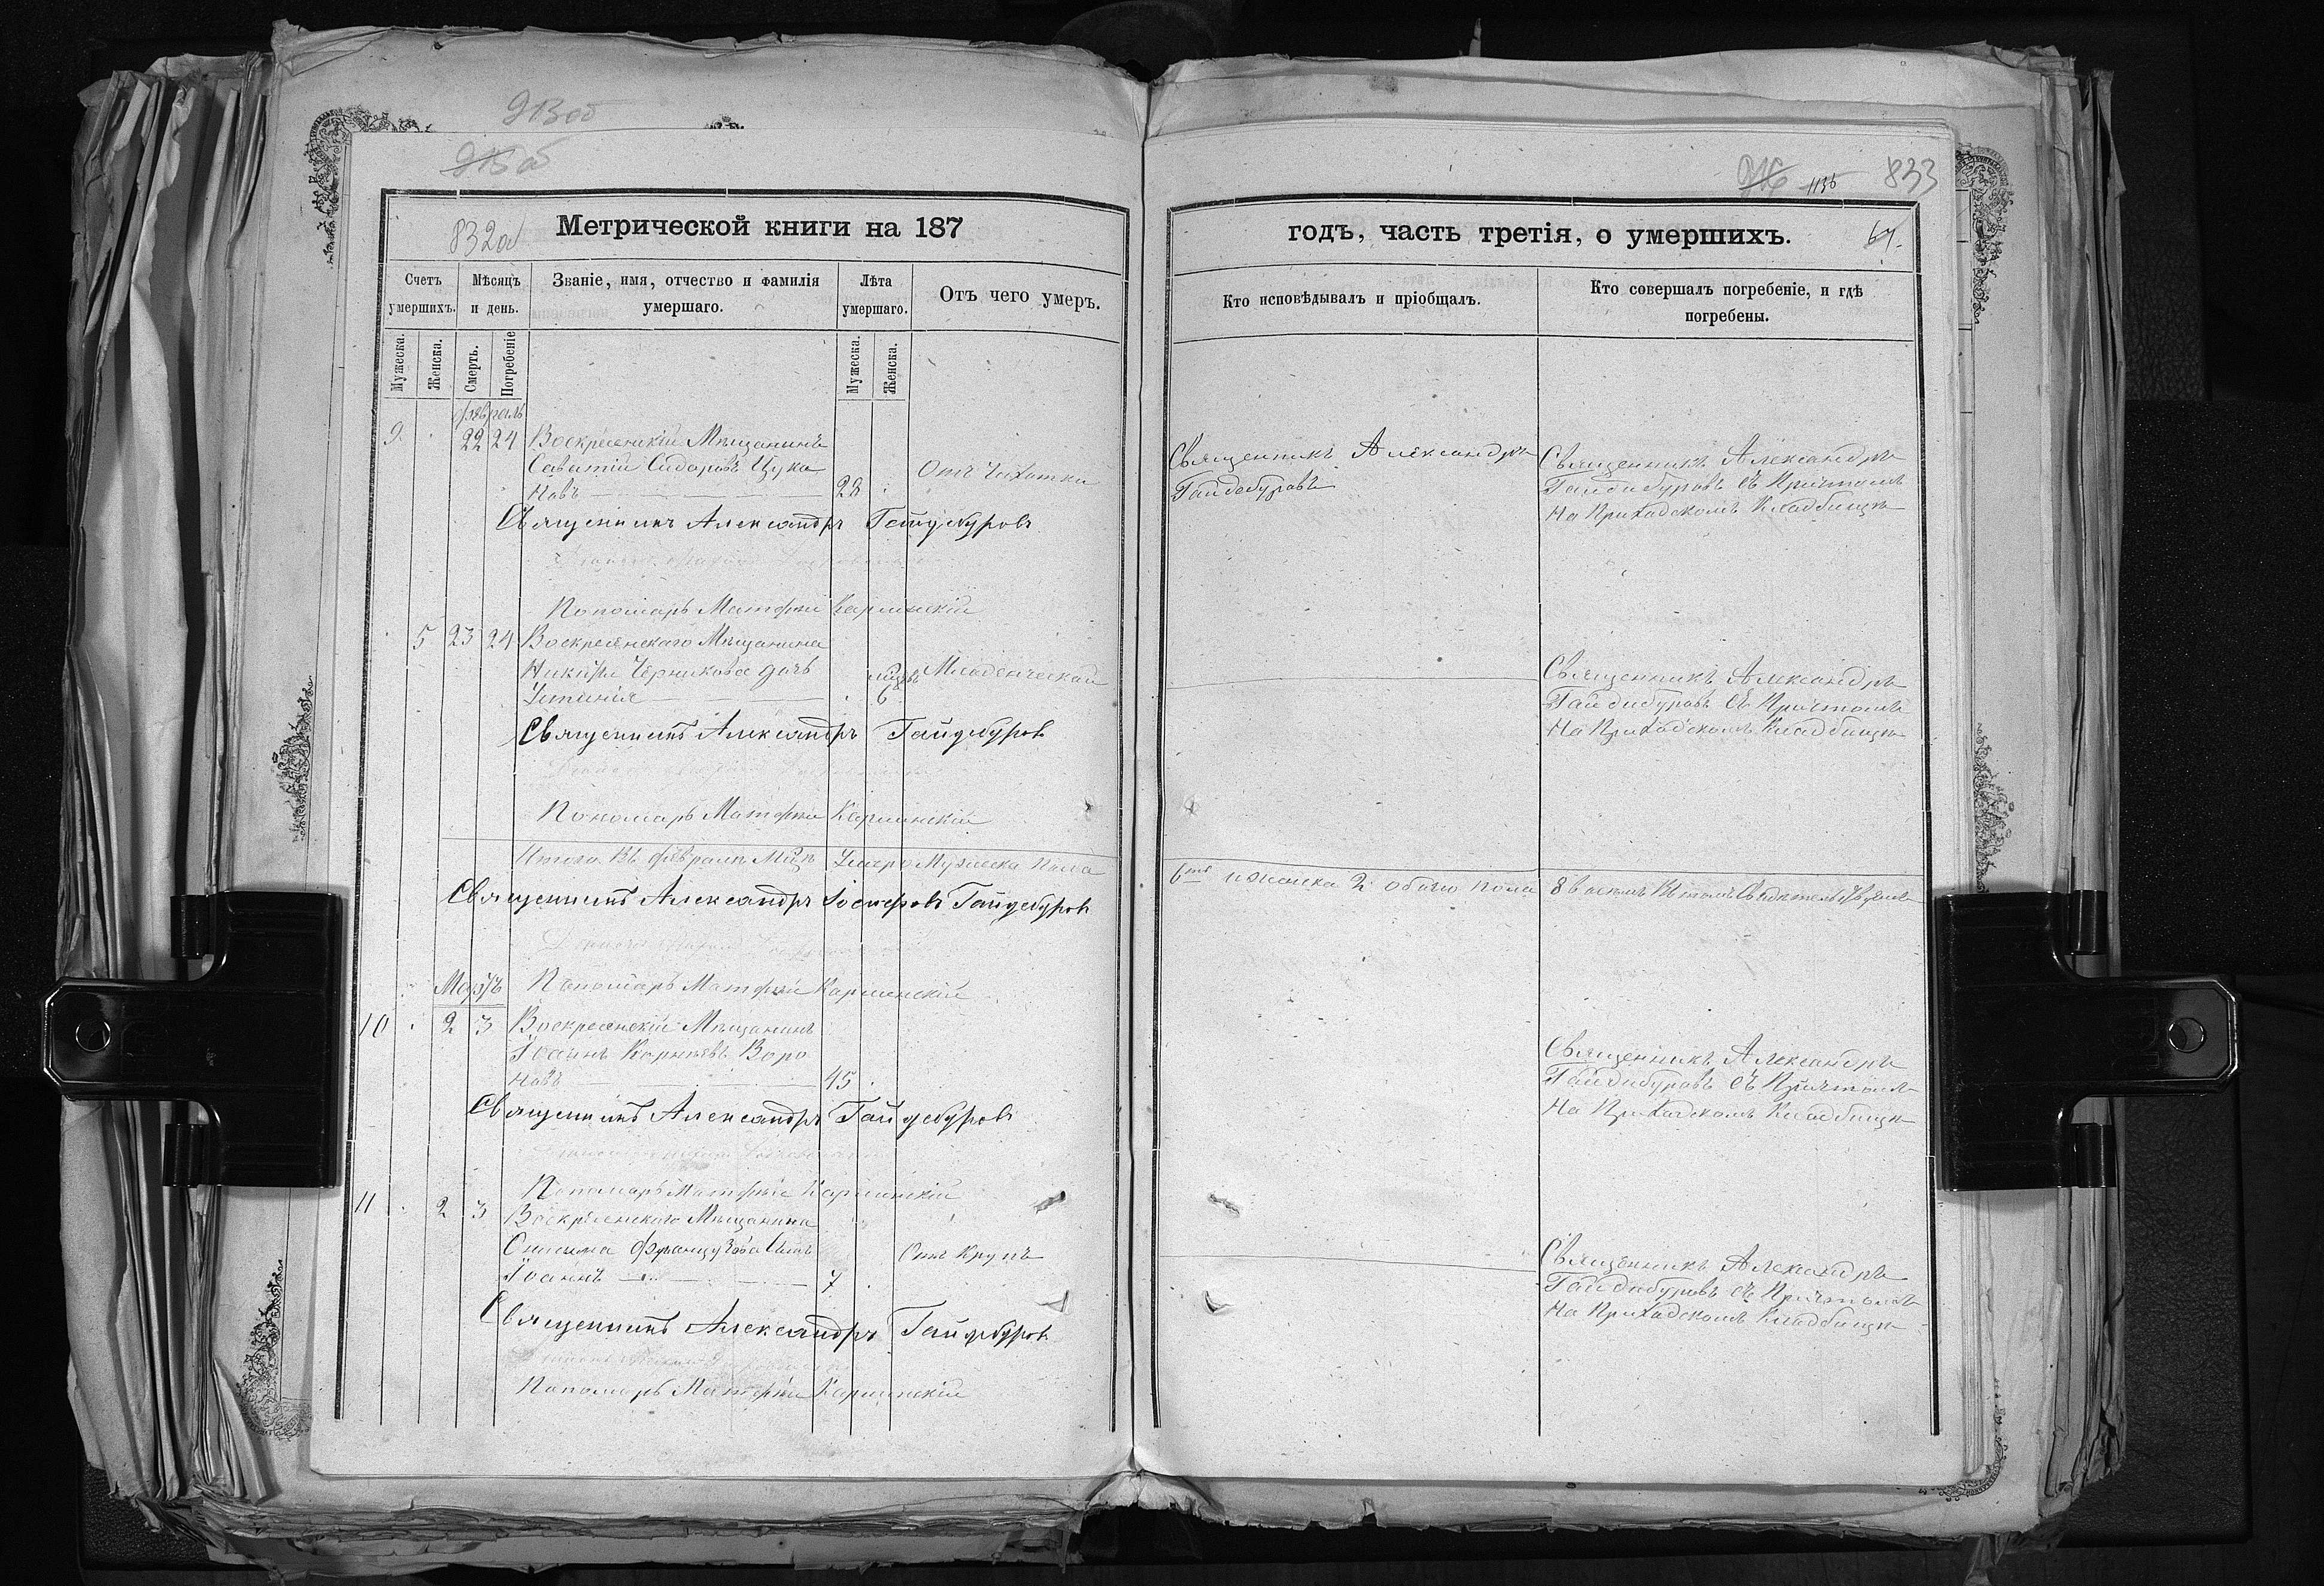 913об
832об
Метрической книги на 187
Счетъ умершихъ.
Мѣсяцъ и день.
Званіе, имя, отчество и фамилія умершаго.
Лѣта умершаго.
Отъ чего умеръ.
Мужеска.
Женска.
Смерть.
Погребеніе
Мужеска.
Женска.
февраль
9. 22 24 Воскресенскій Мѣщанинъ
Саватій Сидоровъ Цука
новъ 28 Отъ Чихотки
Священникъ Александръ Гайдебуровъ
Пономарь Матфей Карминскій
5 23 24 Воскресенскаго Мѣщанина
Никиты Черникова дочь
Устинія 6 Младенческой
Священникъ Александръ Гайдебуровъ
Пономарь Матфей Карминскій
Итого въ февралѣ Умерло Мужеска пола
Священникъ Александръ Гайдебуровъ
Мартъ
Пономарь Матфей Карминскій
10 2 3 Воскресенскій Мѣщанинъ
Іоаннъ Корнѣевъ Воро
новъ 45
Священникъ Александръ Гайдебуровъ
Пономарь Матфей Карминскій
11 2 3 Воскресенскаго Мѣщанина
Французова Сынъ
Іоаннъ 7 Отъ Крупъ
Священникъ Александръ Гайдебуровъ
Пономарь Матфей Карминскій
1136 833
годъ, часть третія, о умершихъ. 67.
Кто исповѣдывалъ и пріобщалъ.
Кто совершалъ погребеніе, и гдѣ погребены.
Священникъ Александръ
Гайдебуровъ
Священникъ Александръ
Гайдебуровъ съ Причтомъ
На Приходскомъ Кладбищѣ
Священникъ Александръ
Гайдебуровъ съ Причтомъ
На Приходскомъ Кладбищѣ
6ть и женска 2 обоего пола 8
Священникъ Александръ
Гайдебуровъ съ Причтомъ
На Приходскомъ Кладбищѣ
Священникъ Александръ
Гайдебуровъ съ Причтомъ
На Приходскомъ Кладбищѣ